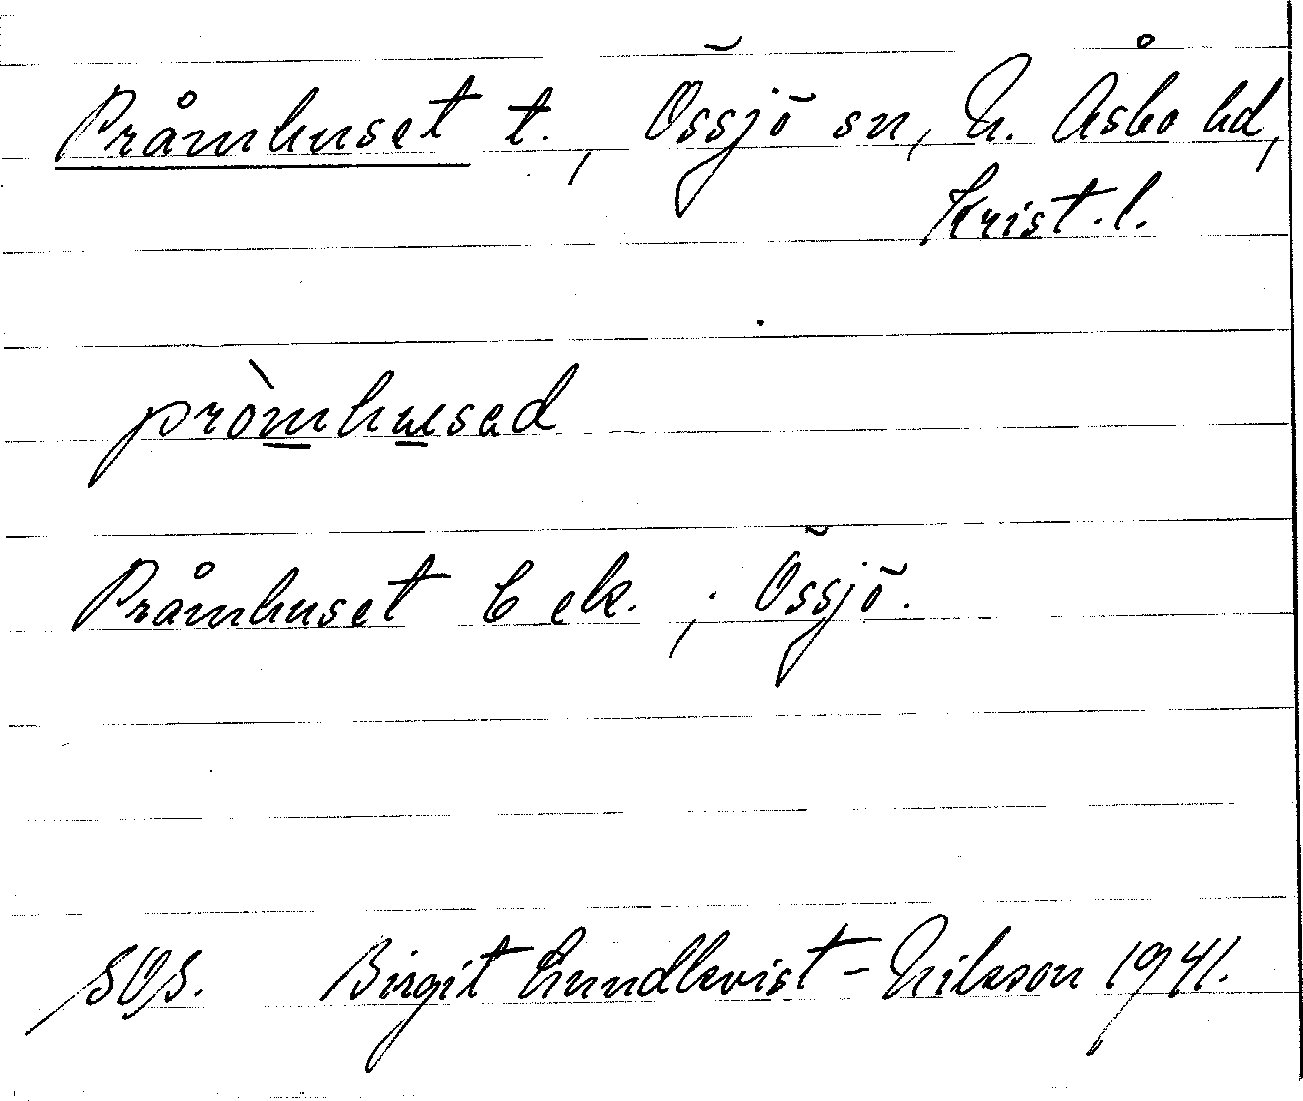 Pråmhuset t., Össjö sn, N. Åsbo hd,
Krist. l.
pròmhusad
Pråmhuset C ek. ; Össjö.
SOS. Birgit Lundkvist-Nilsson 1941.